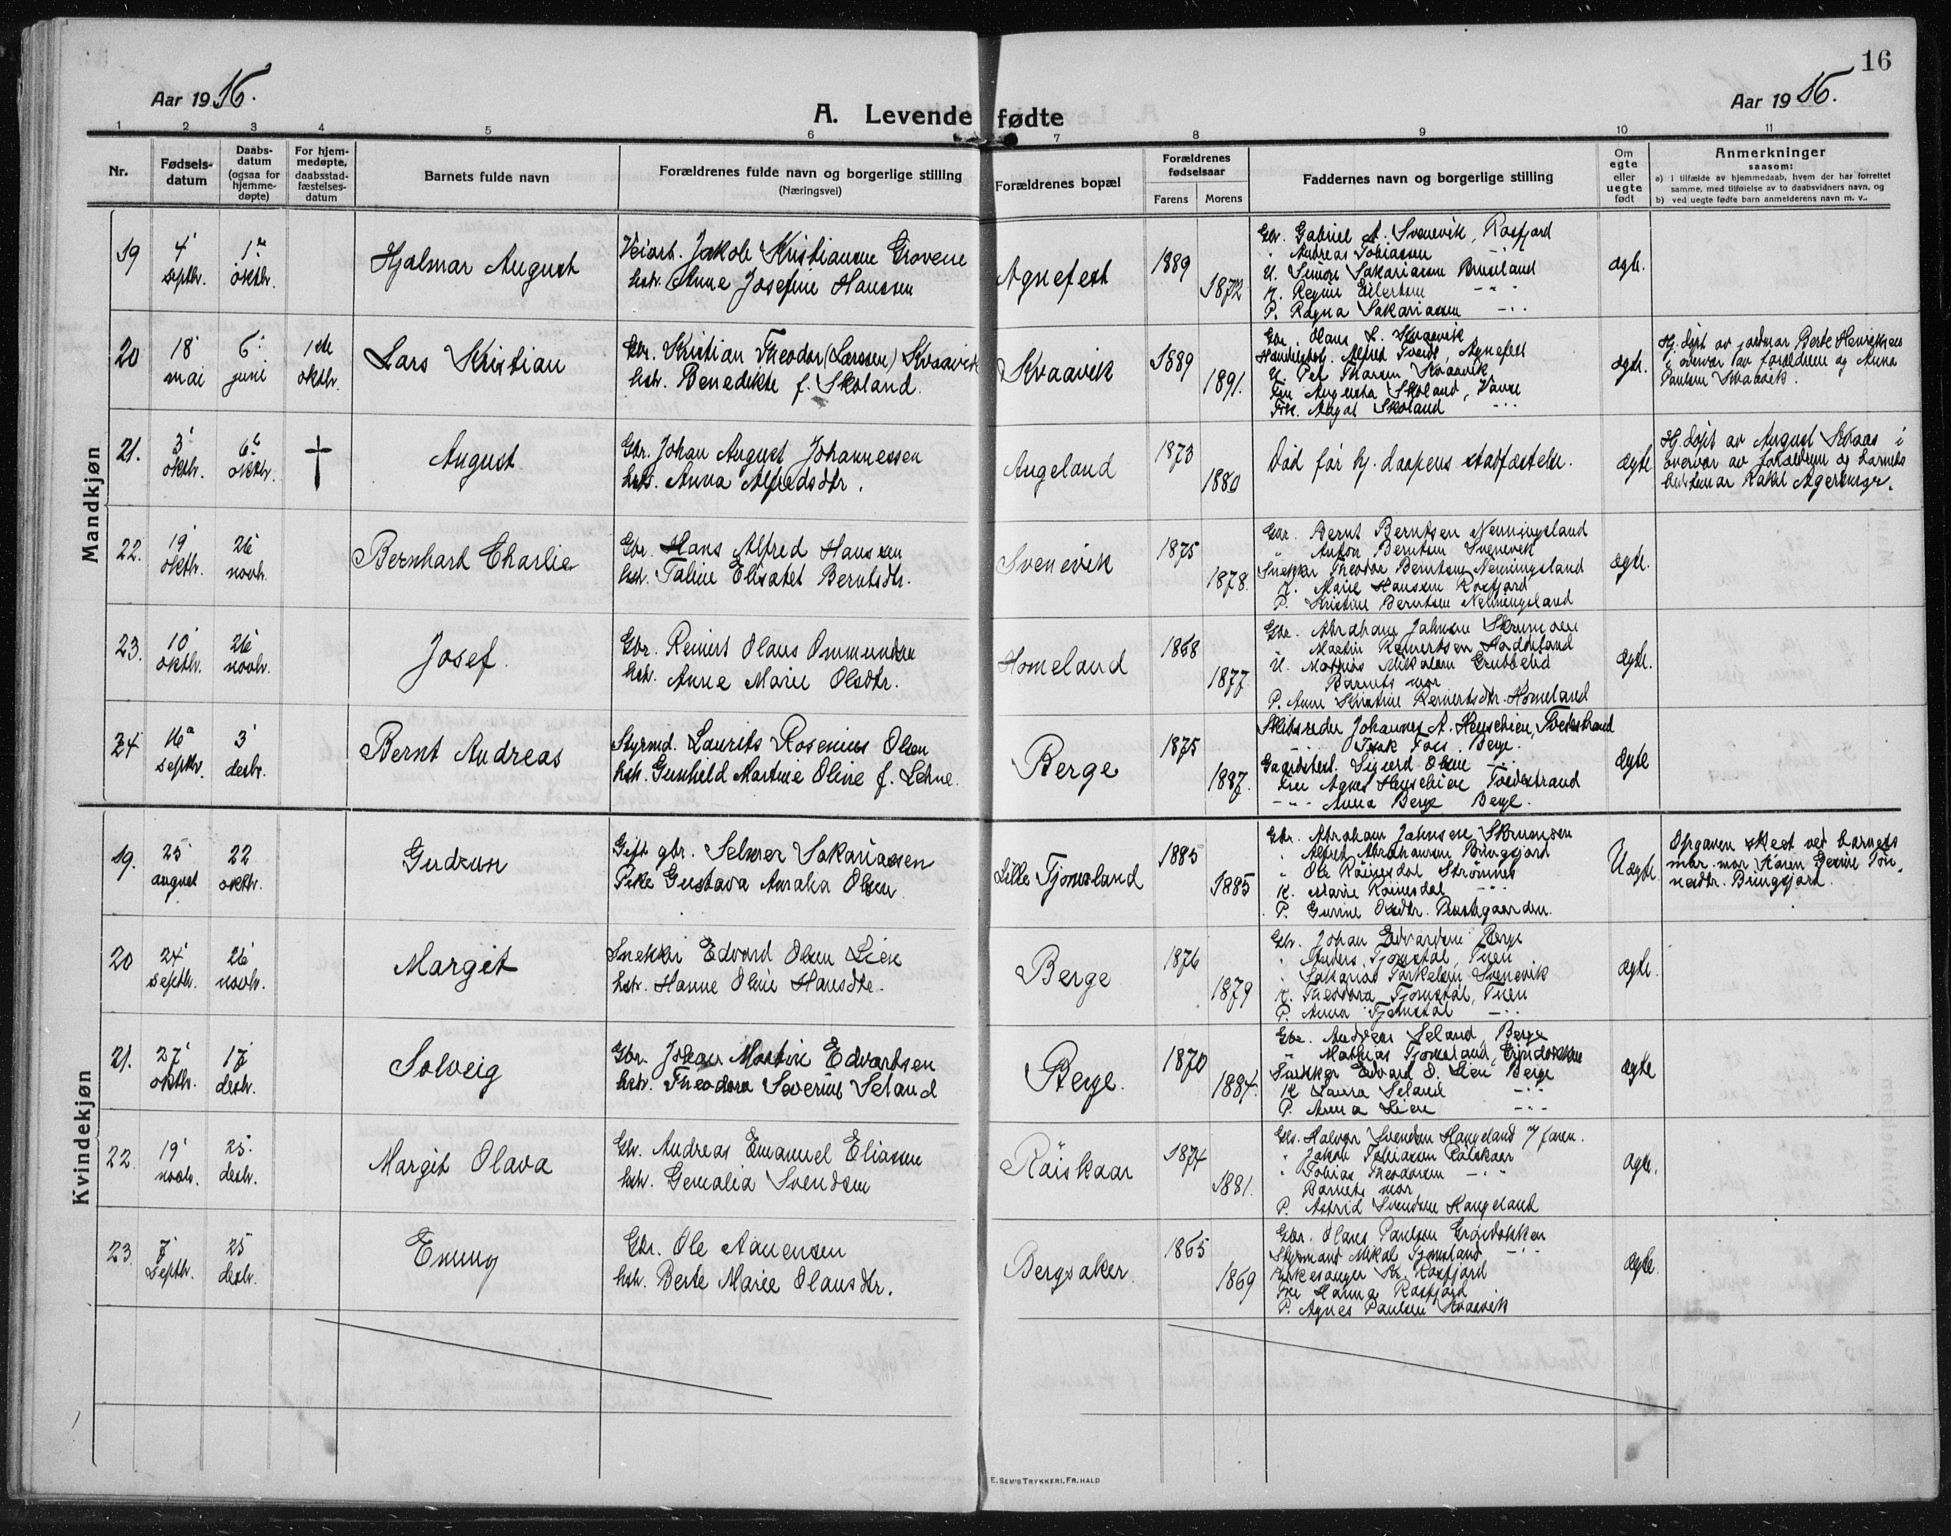 16
Aar 1916.
A. Levende fødte
Aar 1916.
1 2 3 4 5 6 7 8 9 10 11
Nr.
Fødsels-
datum
Daabs-
datum
(ogsaa for
hjemme-
døpte)
For hjem-
medøpte,
daabsstad-
fæstelses-
datum
Barnets fulde navn
Forældrenes fulde navn og borgerlige stilling
(Næringsvei)
Forældrenes bopæl
Forældrenes
fødselsaar
Farens Morens
Faddernes navn og borgerlige stilling
Om
egte
eller
uegte
født
Anmerkninger
saasom:
a) i tilfælde av hjemmedaab, hvem der har forrettet
samme, med tilføielse av to daabsvidners navn, og
b) ved uegte fødte barn anmelderens navn m. v..
Mandkjøn
19
4
septbr.
1
oktbr.
Hjalmar August
Jakob Kristiansen Grovene
hstr. Anne Josefine Hanssen
Agnefest
1889
1872
Gbr. Gabriel A. Svenevik, Rosfjord
" Andreas Tobiassen
U. Simon Sakariassen
K. Regine Eilertsen
P. Ragna Sakariassen
ægte.
20
18
mai
6
juni
1ste
oktbr.
Lars Kristian
Gbr. Kristian Theodor (Larssen) Kvaavik
hstr. Benedikte f. Skoland.
Kvaavik
1889
1891.
Gbr. Olaus L. Kvaavik
Alfred Tveit, Agnefest
U. Per Kvaavik
Fru Augusta Skoland, Vanse
Frk. Skoland
ægte.
Hj. døpt av jordmor Berte Henriksen
i overvær av forældrene og Anna
Paulsen Kvaavik.
21.
3
oktbr.
6
oktbr.
†
August
Gbr. Johan August Johannessen
hstr. Anna Alfredsdtr.
Augeland
1873
1880
Død før hj. daapens stadfæstelse.
ægte
Hj. døpt av August i
overvær av forældrene og barnets
Rakel
22.
19
oktbr.
26
novbr.
Bernhart Charlie
Gbr. Hans Alfred Hanssen
hstr. Taline Elisabet Berntsdtr.
Svenevik
1875
1878.
Gbr. Bernt Berntsen Nenningsland
" Anton Berntsen Svenevik
Snekker Theodor Berntsen Nenningsland
K. Marie Hanssen Rosfjord
P. Kristine Berntsen Nenningsland
ægte.
23.
10
oktbr.
26
novbr.
Josef.
Gbr. Reinert Olaus Ommundsen
hstr. Anne Marie Olsdtr.
Homeland
1868
1877
Gbr. Abraham Jahnsen Skrumoen
" Martin Reinertsen
U. Mathias Mikalsen
Barnets mor
P. Anne Kristine Reinertsdtr. Homeland
ægte.
24
16
septbr.
3
desbr.
Bernt Andreas
Styrmd. Laurits Rosenius Olsen
hstr. Gunhild Martine Oline f. Lehne.
Berge
1875
1887.
Skibsreder Johannes A. Henschien, Tvedestrand
Isak Foss, Berge.
Sigurd Olsen
Fru Agnes Henschien Tvedestrand
Anna Berge Berge.
ægte
Kvindekjøn
19.
25
august
22
oktbr.
Gudrun
Gift gbr. Selmer Sakariassen
Pike Gustava Amalia Olsen
Lille Tjomsland
1885
1885
Gbr. Abraham Jahnsen Skrumoen
" Alfred Abrahamsen Bringsjord
" Ole Røinesdal Strømnes
K. Marie Røinesdal
P. Gurine Olsdtr. Prestgaarden.
Uægte.
Opgaven skeet ved barnets
mor mor Karin
Bringsjord.
20
24
septbr.
26
novbr.
Margit
Snekker Edvard Olsen Lien
hstr. Hanne Oline Hansdtr.
Berge
1876
1879
Gbr. Johan Edvardsen Berge
" Anders Tjomstøl, Tuen
" Sakarias Torkelsen Svenevik
K. Theodora Tjomstøl, Tuen
P. Anna Tjomstøl
ægte.
21.
27
oktbr.
17
desbr.
Solveig
Gbr. Johan Martin Edvartsen
hstr. Theodora Severine Seland
Berge.
1870
1884.
Gbr. Andreas Seland, Berge
" Mathias Tjomsland,
Snekker Edvard O. Lien Berge
K. Laura Seland
P. Anna Lien
ægte
22.
19
novbr.
25
desbr.
Margit Olava
Gbr. Andreas Emanuel Eliassen
hstr. Gemalia Svendsen
Røiskaar
1874
1881.
Gbr. Halvor Svendsen Haugeland
" Jakob Tobiassen Røiskaar
" Tobias Theodorsen
Barnets mor
P. Astrid Svendsen Haugeland
ægte.
23.
7
septbr.
25
desbr.
Emmy
Gbr. Ole Aanensen
hstr. Berte Marie Olausdtr.
Bergsaker.
1865
1869
Gbr. Olaus Paulsen
Styrmand Mikal Tjomsland
Kirkesanger Rosfjord
Fru Hanna Rosfjord
P. Agnes Paulsen Kvaavik
ægte.
E. SEM'S TRYKKERI, FR.HALD